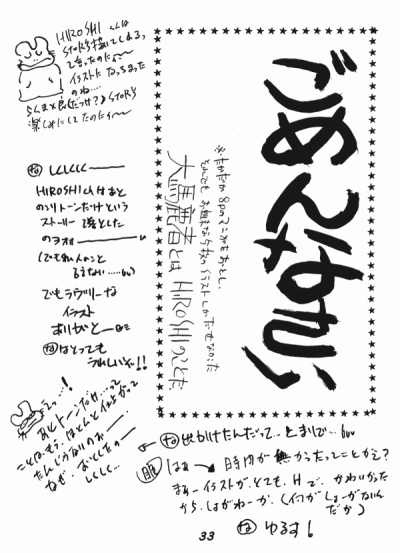 HIROSHI くんは
STORY描いてしまう、
って言ったのにィ〜
イラストになっちまった
のね…
STORY
楽しみにしてたのにィ〜
ごめんなさい
※たかだか8Pのマンガをおとし、
とんでもお粗末な
イラストしかだせなかった
大馬鹿者とは HIROSHIのことだ
な しくしくしく――
HIROSHIくんはあと
のこりトーンだけという
ストーリーで落とした
のヲォォ――
(でも私、人のこと
言えない……)
でもラヴリーな
イラスト
ありがと――
なはとっても
うれしいゾ!!
えっ…!
あとトーンだけ……って
ことは、もう、ほとんど仕上がって
たんじゃないのォ――
なぜ、おとしたの――
しくしく…
な 出かけたんだって… とまりで…
はぁ 時間が無かったってことかえ?
まぁーイラストが、とても、Hで、かわいかった
から、しょがねーか、(イヤがしょーがないん
だか)
な ゆるす!
33